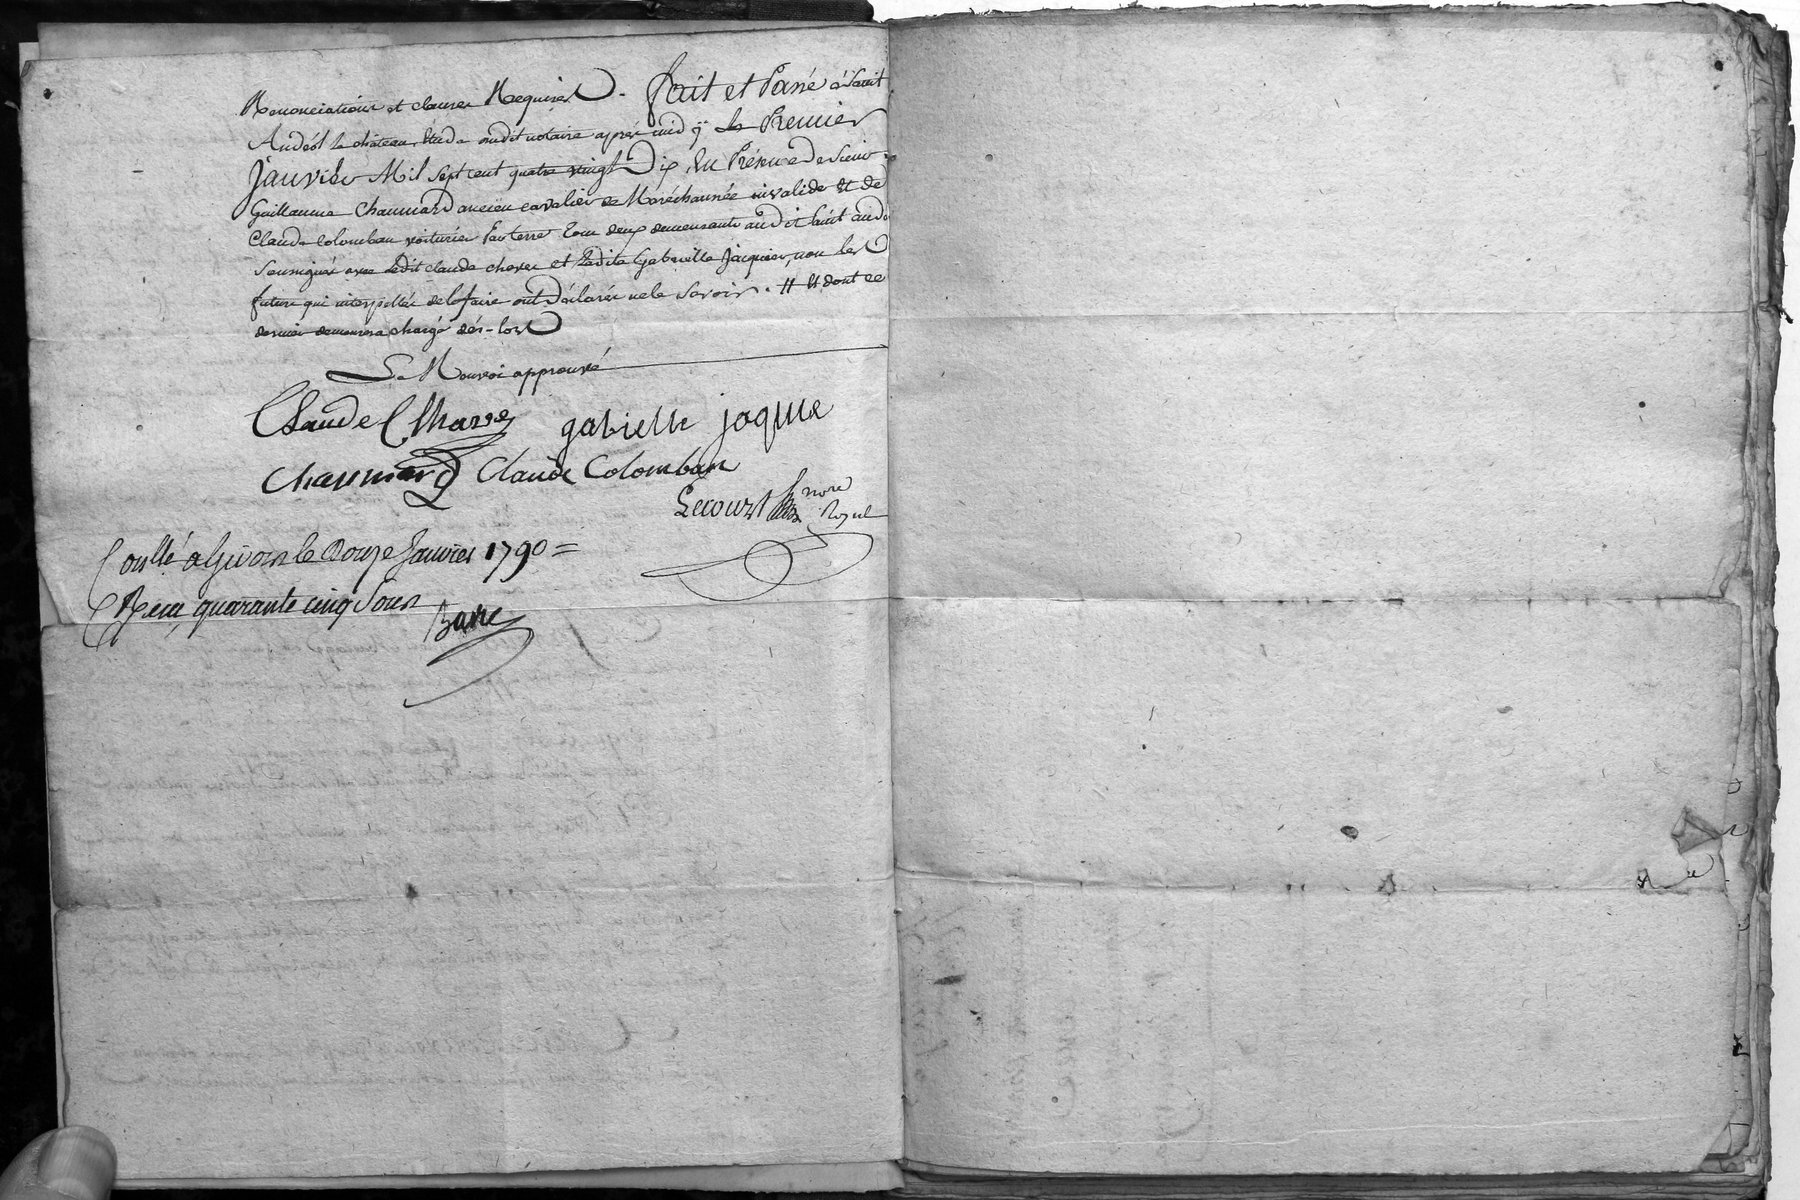 Renonciations et clauses Requises. fait et Passé à Saint
Andéol le château, étude dudit notaire après midÿ le Premier
Janvier Mil sept cent quatre vingt Dix, En Présence de Sieur
Guillaume Chaumard ancien cavalier de Maréchaussée invalide Et de
Claude Colomban voiturier par terre tous deux demeurants audit Saint andéol
Soussignés avec ledit claude chavre et Ladite Gabrielle Jacquier, non les
futurs qui interpellés de le faire ont Déclarés ne le Savoir. // Et dont ce
dernier demeurera chargé dès-lors
Le Renvoi approuvé
Claude Charve gabrielle joquie
Chaumard Claude Colomban
Lecourt nore
Royal
Conllé a Givors le Douze Janvier 1790 =
Reçu quarante cinq Sous
Barre